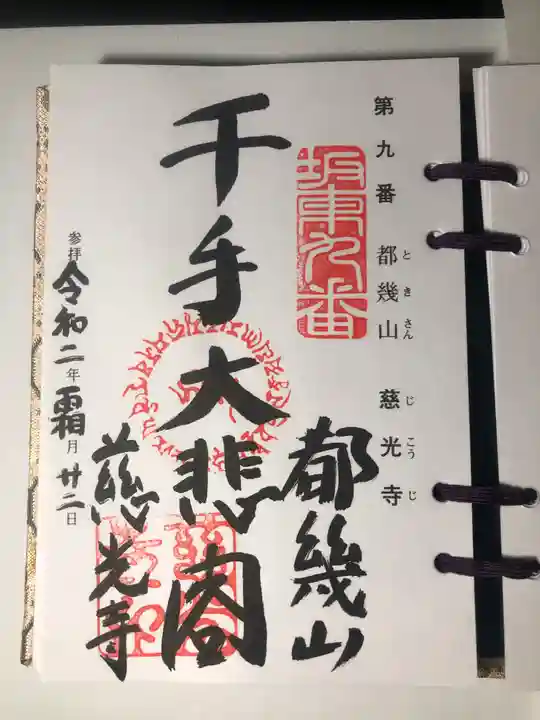 第九番 都幾山 慈光寺
とき さん
じ こう じ
坂東九番
都幾山
千手大悲閣
慈光寺
参拝 令和二年霜月廿二日